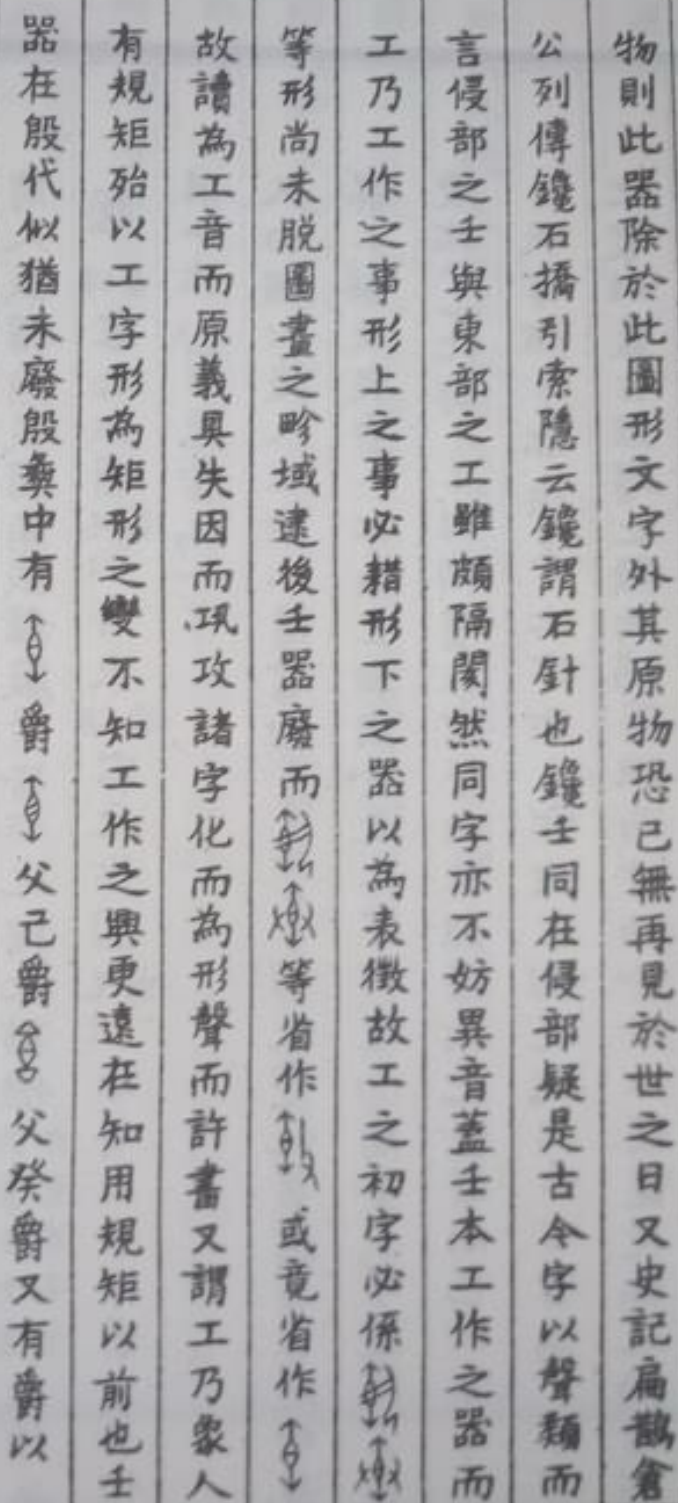 物則此器除於此圖形文字外其原物恐已無再見於世之日又史記扁鵲倉
公列傳鑱石撟引索隱云鑱謂石針也鑱壬同在侵部疑是古今字以聲類而
言侵部之壬與東部之工雖頗隔閡然同字亦不妨異音蓋壬本工作之器而
工乃工作之事形上之事必耤形下之器以為表徵故工之初字必係
等形尚未脫圖畫之畛域逮後壬器廢而等省作或竟省作
故讀為工音而原義具失因而巩攻諸字化而為形聲而許書又謂工乃象人
有規矩殆以工字形為矩形之變不知工作之興更遠在知用規矩以前也壬
器在殷代似猶未廢殷彝中有爵父己爵父癸爵又有爵以